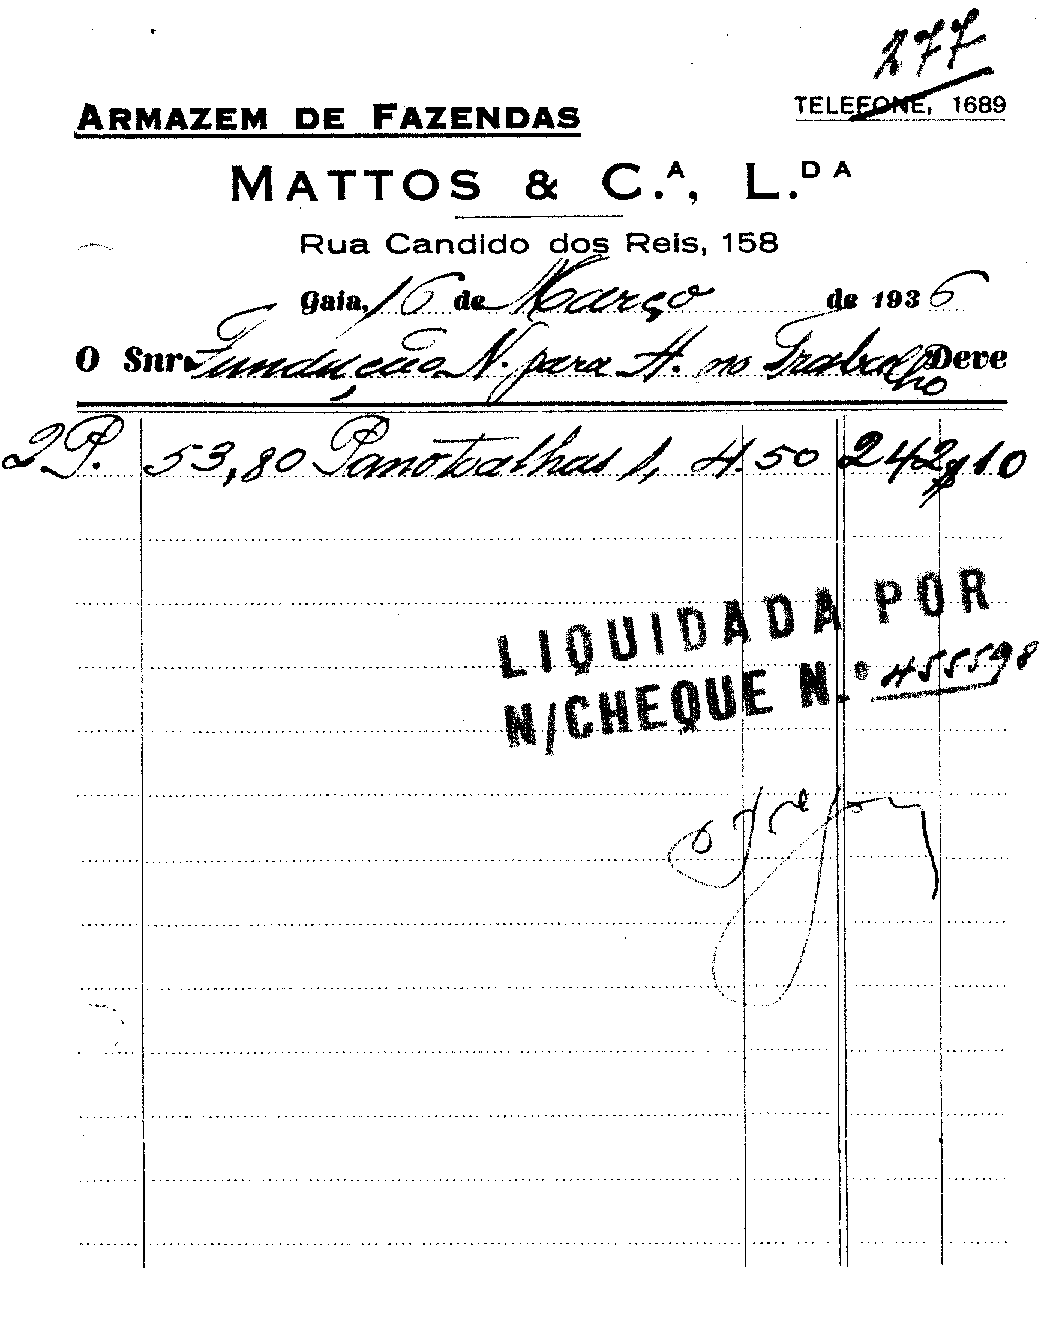 277
ARMAZEM DE FAZENDAS
TELEFONE, 1689
MATTOS & C.A, L.DA
Rua Candido dos Reis, 158
Gaia, 16 de Março de 1936
O Snr. Fundução N. para A. no Trabalho Deve
2 P. 53,80 Pano toalhas 1, 4.50 242$10
LIQUIDADA POR
N/CHEQUE N.º 455598